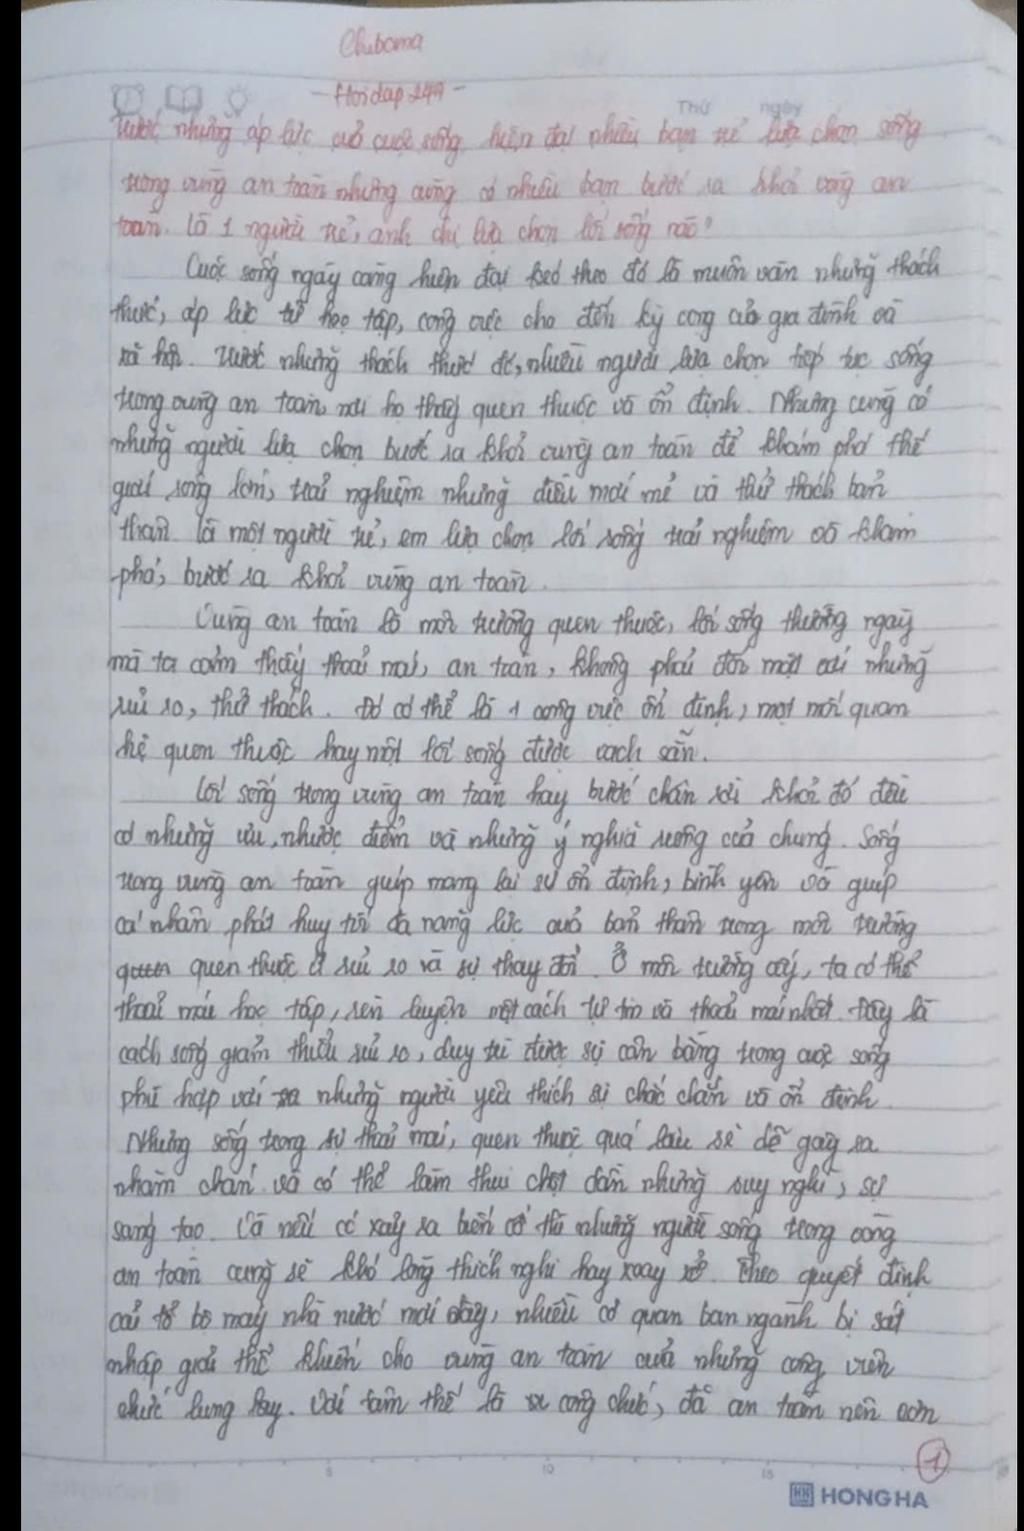 Chuboma
- Hoidap 247 -
Thứ ngày
Trước những áp lực củ cuộc sống hiện đại nhiều bạn trẻ lựa chọn sống
trong vùng an toàn nhưng cũng có nhiều bạn bước ra khỏi vùng an
toàn. Là 1 người trẻ, anh chị lựa chọn lối sống nào?
Cuộc sống ngày càng hiện đại kéo theo đó là muôn vàn những thách
thức, áp lực từ học tập, công việc cho đến kỳ vọng của gia đình và
xã hội. Trước những thách thức đó, nhiều người lựa chọn tiếp tục sống
trong vùng an toàn nơi họ thấy quen thuộc và ổn định. Nhưng cũng có
những người lựa chọn bước ra khỏi vùng an toàn để khám phá thế
giới rộng lớn, trải nghiệm những điều mới mẻ và thử thách bản
thân. Là một người trẻ, em lựa chọn lối sống trải nghiệm và khám
phá, bước ra khỏi vùng an toàn.
Vùng an toàn là môi trường quen thuộc, lối sống thường ngày
mà ta cảm thấy thoải mái, an toàn, không phải đối mặt với những
rủi ro, thử thách. Đó có thể là 1 công việc ổn định, một mối quan
hệ quen thuộc hay một lối sống được vạch sẵn.
Lối sống trong vùng an toàn hay bước chân rời khỏi đó đều
có những ưu, nhược điểm và những ý nghĩa riêng của chúng. Sống
trong vùng an toàn giúp mang lại sự ổn định, bình yên và giúp
cá nhân phát huy tối đa năng lực của bản thân trong môi trường
quen thuộc ít rủi ro và sự thay đổi. Ở môi trường ấy, ta có thể
thoải mái học tập, rèn luyện một cách tự tin và thoải mái nhất. Đây là
cách sống giảm thiểu rủi ro, duy trì được sự cân bằng trong cuộc sống
phù hợp với những người yêu thích sự chắc chắn và ổn định.
Nhưng sống trong sự thoải mái, quen thuộc quá lâu sẽ dễ gây ra
nhàm chán và có thể làm thui chột dần những suy nghĩ, sự
sáng tạo. Và nếu có xảy ra biến cố thì những người sống trong vùng
an toàn cũng sẽ khó lòng thích nghi hay xoay xở. Theo quyết định
cải tổ bộ máy nhà nước mới đây, nhiều cơ quan ban ngành bị sát
nhập giải thể khiến cho vùng an toàn của những công viên
chức lung lay. Với tâm thế là công chức, đã an toàn nên
1
5 10 15
HH HONG HA